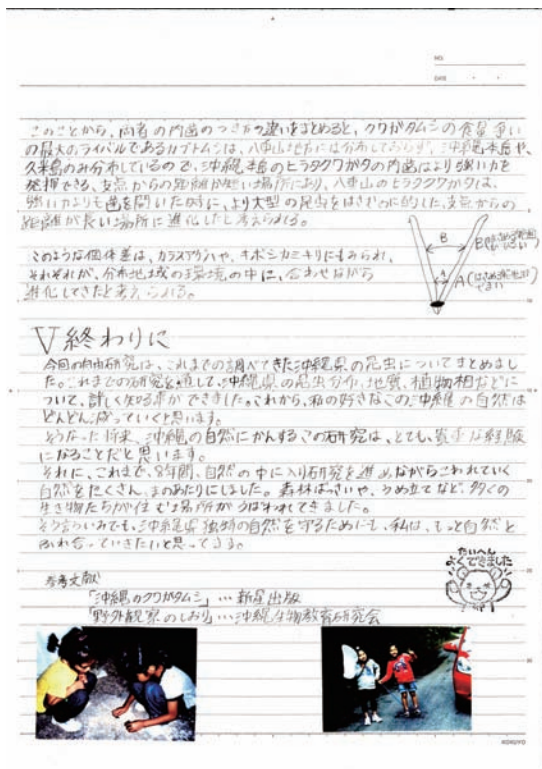 NO.
DATE ・ ・
このことから、両者の内歯のつき方の違いをまとめると、クワガタムシの食量争い
の最大のライバルであるカブトムシは、八重山地方には分布しておらず、沖縄本島や、
久米島のみ分布しているので、沖縄本島のヒラタクワガタの内歯はより強い力を
発揮できる、支点からの距離が短い場所により、八重山のヒラタクワガタは、
強い力よりも歯を開いた時に、より大型の昆虫をはさむのに的した、支点からの
距離が長い場所に進化したと考えられる。
B
B(はさめる範囲がひろい)
A
A(はさめる範囲がせまい)
このような個体差は、カラスアゲハや、キボシカミキリにもみられ、
それぞれが、分布地域の環境の中に、合わせながら
進化してきたと考えられる。
Ⅴ終わりに
今回の自由研究は、これまでの調べてきた沖縄県の昆虫についてまとめまし
た。これまでの研究を通して、沖縄県の昆虫分布、地質、植物相などに
ついて、詳しく知る事ができました。これから、私の好きなこの沖縄の自然は
どんどん減っていくと思います。
そうなった将来、沖縄の自然にかんするこの研究は、とても、貴重な経験
になることだと思います。
それに、これまで、8年間、自然の中に入り研究を進めながらこわれていく
自然をたくさん、まのあたりにしました。森林ばっさいや、うめ立てなど、多くの
生き物たちが住む場所がうばわれてきました。
そう言ういみでも、沖縄県独特の自然を守るためにも、私は、もっと自然と
ふれ合っていきたいと思ってます。
たいへん
よくできました
参考文献
「沖縄のクワガタムシ」…新星出版
「野外観察のしおり」…沖縄生物教育研究会
KOKUYO